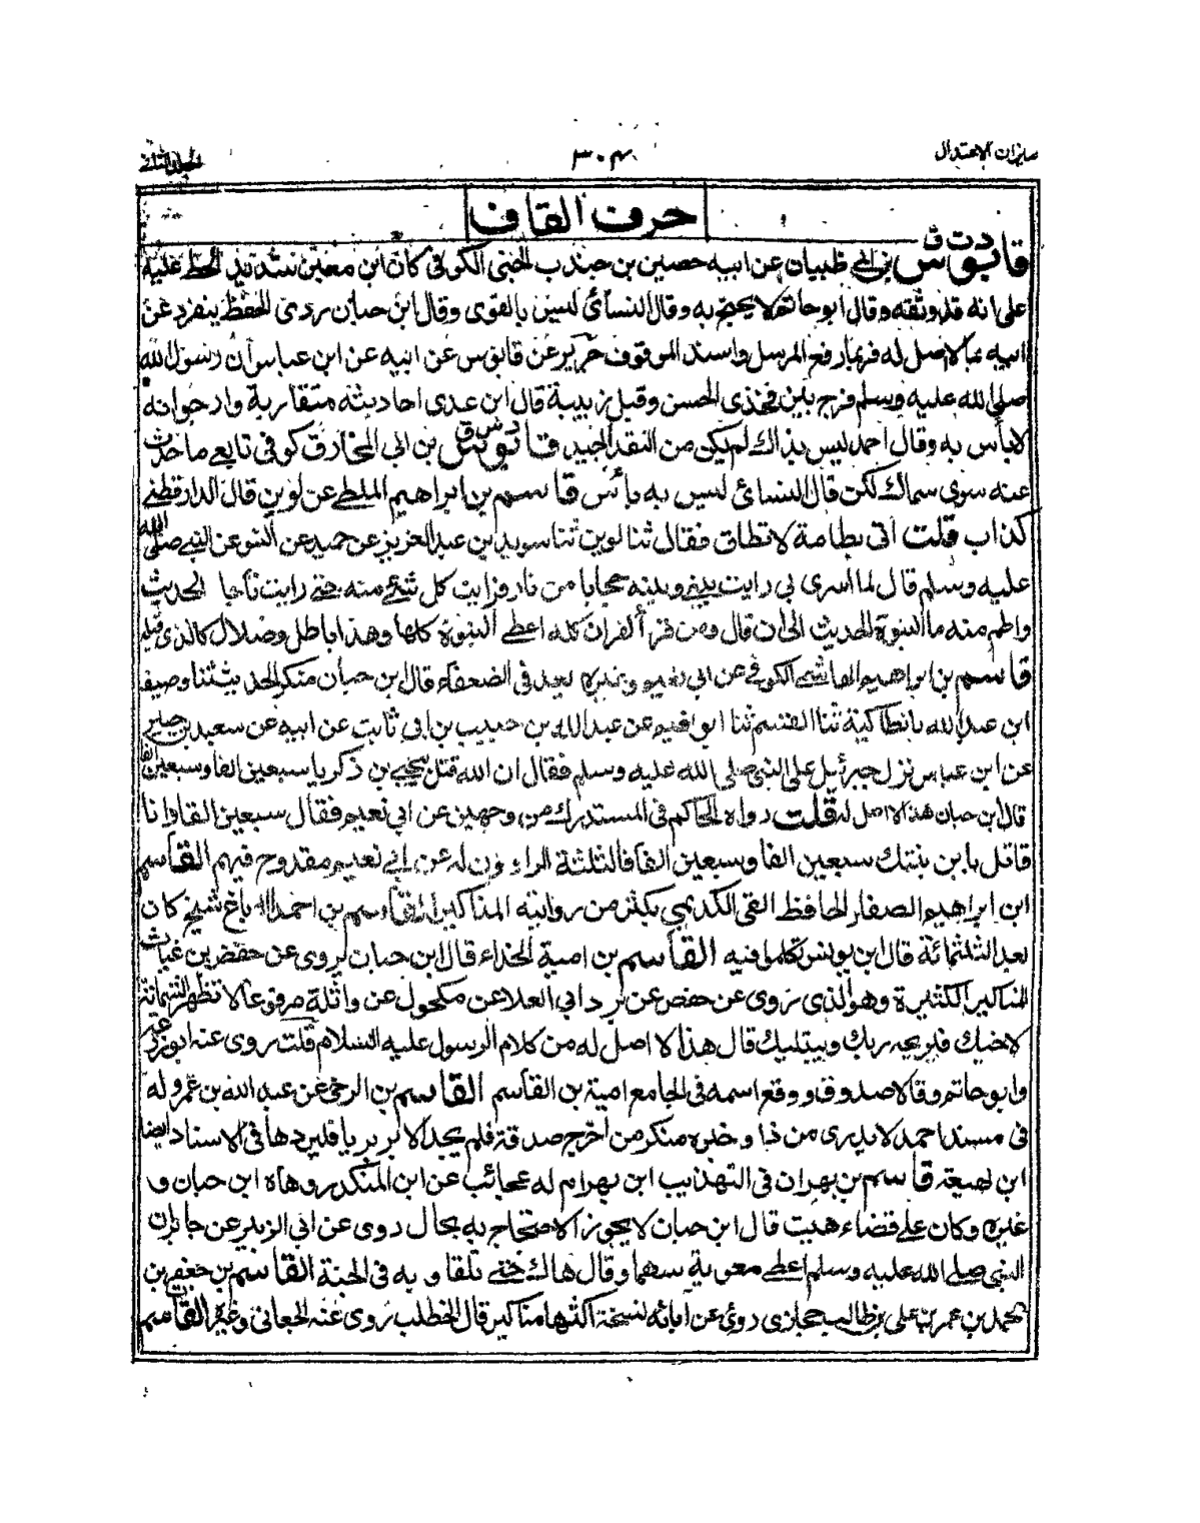 ميزان الاعتدال
٣٠٤
المجلد الثاني
حرف القاف
د ت ق
قابوس بن ابي ظبيان عن ابيه حصين بن جندب الجنبي الكوفي كان ابن معين شديد الحط عليه
على انه قد وثقه وقال ابو حاتم لا يحتج به وقال النسائي ليس بالقوى وقال ابن حبان ردى الحفظ ينفرد عن
ابيه بما لا اصل له فربما رفع المرسل واسند الموقوف جرير عن قابوس عن ابيه عن ابن عباس ان رسول الله
صلى الله عليه وسلم فرج بين فخذى الحسن وقبل زبيبة قال ابن عدى احاديثه متقاربة وارجو انه
لا بأس به وقال احمد ليس بذاك لم يكن من النقد الجيد قابوس د س ق بن ابى المخارق كوفى تابعى ما حدث
عنه سوى سماك لكن قال النسائى ليس به بأس قاسم بن ابراهيم الملطى عن لوين قال الدارقطنى
كذاب قلت اتى بطامة لا تطاق فقال ثنا لوين ثنا سويد بن عبد العزيز عن حميد عن انس عن النبى صلى الله
عليه وسلم قال لما اسرى بى رايت بينى وبينه حجابا من نار فرايت كل شئ منه حتى رايت تاجا الحديث
واطم منه ما النبوة الحديث الى ان قال ومن قرأ القران كله اعطى النبوة كلها وهذا باطل وضلال كالذى قبله
قاسم بن ابراهيم الهاشمى الكوفى عن ابى نعيم وغيره يعد فى الضعفاء قال ابن حبان منكر الحديث ثنا وصيف
ابن عبد الله بانطاكية ثنا القسم ثنا ابو نعيم عن عبد الله بن حبيب بن ابى ثابت عن ابيه عن سعيد بن جبير
عن ابن عباس نزل جبرئيل على النبى صلى الله عليه وسلم فقال ان الله قتل بيحيى بن زكريا سبعين الفا وسبعين الفا
قال ابن حبان هذا لا اصل له قلت رواه الحاكم فى المستدرك من وجهين عن ابى نعيم فقال سبعين الفا وانا
قاتل بابن بنتك سبعين الفا وسبعين الفا فالثلثة الراوون له عن ابى نعيم مقدوح فيهم القاسم
ابن ابراهيم الصفار الحافظ الكديمى يكثر من رواية المناكير القاسم بن احمد الدباغ شيخ كان
بعد الثلثمائة قال ابن يونس تكلموا فيه القاسم بن امية الحذاء قال ابن حبان يروى عن حفص بن غياث
المناكير الكثيرة وهو الذى روى عن حفص عن برد ابى العلا عن مكحول عن واثلة مرفوعا لا تظهر الشماتة
لاخيك فيريحه ربك ويبتليك قال هذا لا اصل له من كلام الرسول عليه السلام قلت روى عنه ابو زرعة
وابو حاتم وقالا صدوق ووقع اسمه فى الجامع امية بن القاسم القاسم بن الرحى عن عبد الله بن عمرو له
فى مسند احمد لا يدرى من ذا وخبره منكر من اخرج صدقة فلم يجد الا بربريا فليردها فى الاسناد ايضا
ابن لهيعة قاسم بن بهران فى التهذيب ابن بهرام له عجائب عن ابن المنكدر وهاه ابن حبان و
غيره وكان على قضاء هيت قال ابن حبان لا يجوز الاحتجاج به بحال روى عن ابى الزبير عن جابر ان
النبى صلى الله عليه وسلم اعطى معوية سهما وقال هاك حتى تلقانى به فى الجنة القاسم بن جعفر بن
محمد بن عمر بن على بن ابى طالب حجازى روى عن آبائه نسخة اكثرها مناكير قال الخطيب روى عنه الجعابى وغيره القاسم